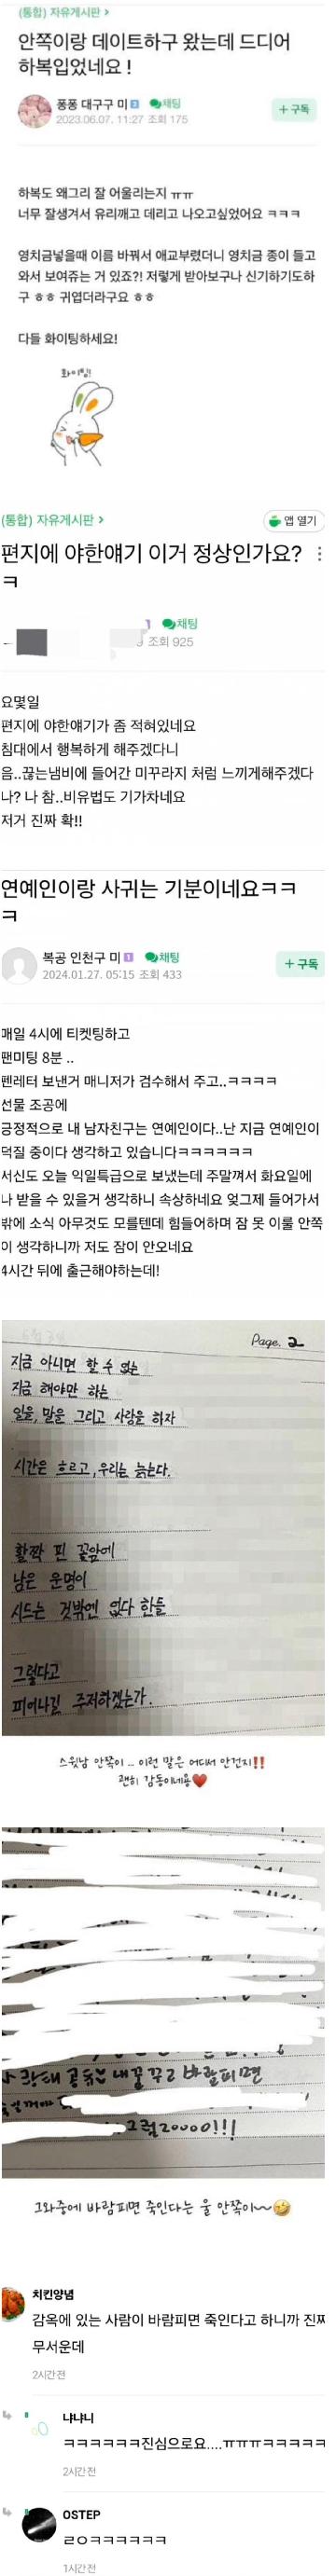 (통합) 자유게시판 >
안쪽이랑 데이트하구 왔는데 드디어
하복입었네요 !
퐁퐁 대구구 미 3 채팅
2023.06.07. 11:27 조회 175
+ 구독
하복도 왜그리 잘 어울리는지 ㅠㅠ
너무 잘생겨서 유리깨고 데리고 나오고싶었어요 ㅋㅋㅋ
영치금넣을때 이름 바꿔서 애교부렸더니 영치금 종이 들고
와서 보여쥬는 거 있죠?! 저렇게 받아보구나 신기하기도하
구 ㅎㅎ 귀엽더라구요 ㅎㅎ
다들 화이팅하세요!
화이팅!
(통합) 자유게시판 >
앱 열기
편지에 야한얘기 이거 정상인가요?
ㅋ
채팅
조회 925
요몇일
편지에 야한얘기가 좀 적혀있네요
침대에서 행복하게 해주겠다니
음..끊는냄비에 들어간 미꾸라지 처럼 느끼게해주겠다
나? 나 참..비유법도 기가차네요
저거 진짜 확!!
연예인이랑 사귀는 기분이네요ㅋㅋ
ㅋ
복공 인천구 미 1 채팅
2024.01.27. 05:15 조회 433
+ 구독
매일 4시에 티켓팅하고
팬미팅 8분 ..
펜레터 보낸거 매니저가 검수해서 주고..ㅋㅋㅋㅋ
선물 조공에
긍정적으로 내 남자친구는 연예인이다..난 지금 연예인이
덕질 중이다 생각하고 있습니다ㅋㅋㅋㅋㅋㅋ
서신도 오늘 익일특급으로 보냈는데 주말껴서 화요일에
나 받을 수 있을거 생각하니 속상하네요 엊그제 들어가서
밖에 소식 아무것도 모를텐데 힘들어하며 잠 못 이룰 안쪽
이 생각하니까 저도 잠이 안오네요
4시간 뒤에 출근해야하는데!
Page. 2
지금 아니면 할 수 없는
지금 해야만 하는
일을, 말을 그리고 사랑을 하자
시간은 흐르고, 우리는 늙는다.
활짝 핀 꽃앞에
남은 운명이
시드는 것밖엔 없다 한들
그렇다고
피어나길 주저하겠는가.
스윗남 안쪽이 .. 이런 말은 어디서 안건지‼️
괜히 감동이네용❤️
사랑해 공듀♥ 내꿈꾸고 바람피면
그럼 20000!!!
그와중에 바람피면 죽인다는 울 안쪽이~🤣
치킨양념
감옥에 있는 사람이 바람피면 죽인다고 하니까 진짜
무서운데
2시간 전
냐냐니
ㅋㅋㅋㅋㅋㅋ진심으로요....ㅠㅠㅠㅋㅋㅋㅋㅋ
2시간 전
OSTEP
ㄹㅇㅋㅋㅋㅋㅋㅋ
1시간 전